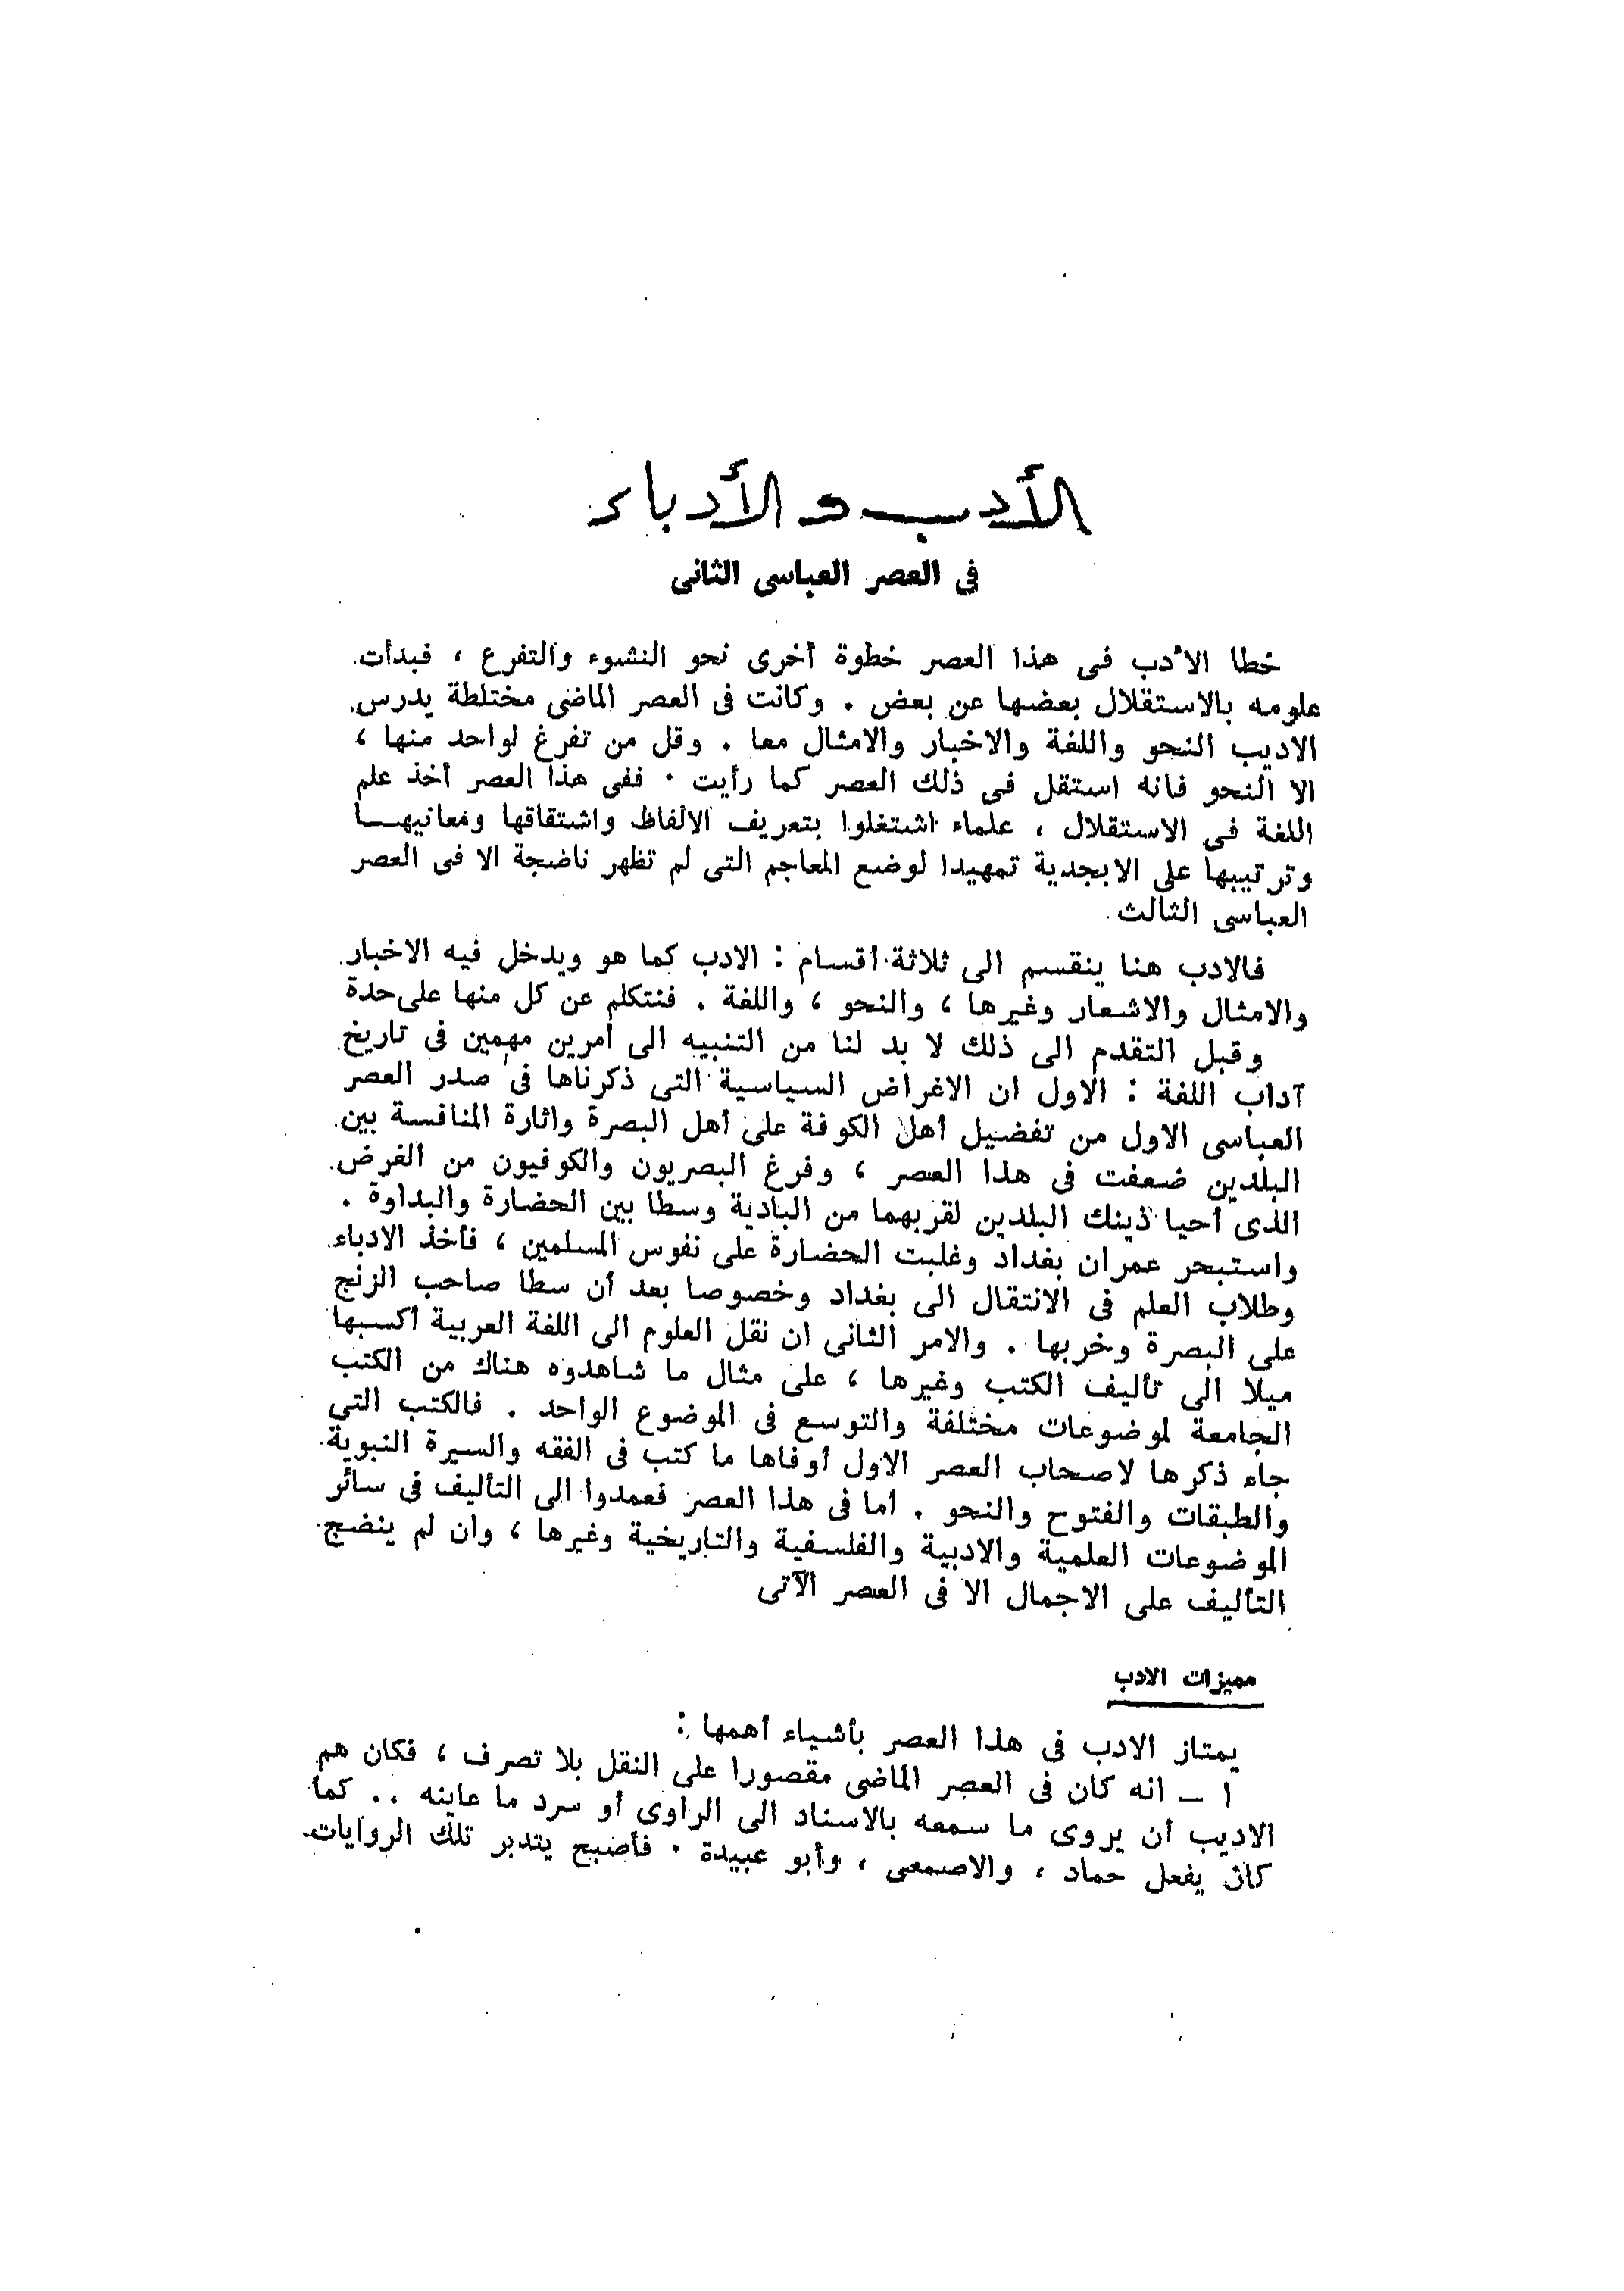 الأدب و الأدباء
فى العصر العباسى الثانى
خطا الأدب فى هذا العصر خطوة أخرى نحو النشوء والتفرع ، فبدأت
علومه بالاستقلال بعضها عن بعض . وكانت فى العصر الماضى مختلطة يدرس
الاديب النحو واللغة والاخبار والامثال معا . وقل من تفرغ لواحد منها ،
الا النحو فانه استقل فى ذلك العصر كما رأيت . ففى هذا العصر أخذ علم
اللغة فى الاستقلال ، علماء اشتغلوا بتعريف الالفاظ واشتقاقها ومعانيهـــا
وترتيبها على الابجدية تمهيدا لوضع المعاجم التى لم تظهر ناضجة الا فى العصر
العباسى الثالث
فالادب هنا ينقسم الى ثلاثة أقسام : الادب كما هو ويدخل فيه الاخبار
والامثال والاشعار وغيرها ، والنحو ، واللغة . فنتكلم عن كل منها على حدة
وقبل التقدم الى ذلك لا بد لنا من التنبيه الى أمرين مهمين فى تاريخ
آداب اللغة : الاول ان الاغراض السياسية التى ذكرناها فى صدر العصر
العباسى الاول من تفضيل أهل الكوفة على أهل البصرة واثارة المنافسة بين
البلدين ضعفت فى هذا العصر ، وفرغ البصريون والكوفيون من الغرض
الذى أحيا ذينك البلدين لقربهما من البادية وسطا بين الحضارة والبداوة .
واستبحر عمران بغداد وغلبت الحضارة على نفوس المسلمين ، فأخذ الادباء
وطلاب العلم فى الانتقال الى بغداد وخصوصا بعد أن سطا صاحب الزنج
على البصرة وخربها . والامر الثانى ان نقل العلوم الى اللغة العربية أكسبها
ميلا الى تأليف الكتب وغيرها ، على مثال ما شاهدوه هناك من الكتب
الجامعة لموضوعات مختلفة والتوسع فى الموضوع الواحد . فالكتب التى
جاء ذكرها لاصحاب العصر الاول أوفاها ما كتب فى الفقه والسيرة النبوية
والطبقات والفتوح والنحو . أما فى هذا العصر فعمدوا الى التأليف فى سائر
الموضوعات العلمية والادبية والفلسفية والتاريخية وغيرها ، وان لم ينضج
التأليف على الاجمال الا فى العصر الآتى
مميزات الادب
يمتاز الادب فى هذا العصر بأشياء أهمها :
١ ـ انه كان فى العصر الماضى مقصورا على النقل بلا تصرف ، فكان هم
الاديب أن يروى ما سمعه بالاسناد الى الراوى أو سرد ما عاينه .. كما
كان يفعل حماد ، والاصمعى ، وأبو عبيدة . فأصبح يتدبر تلك الروايات